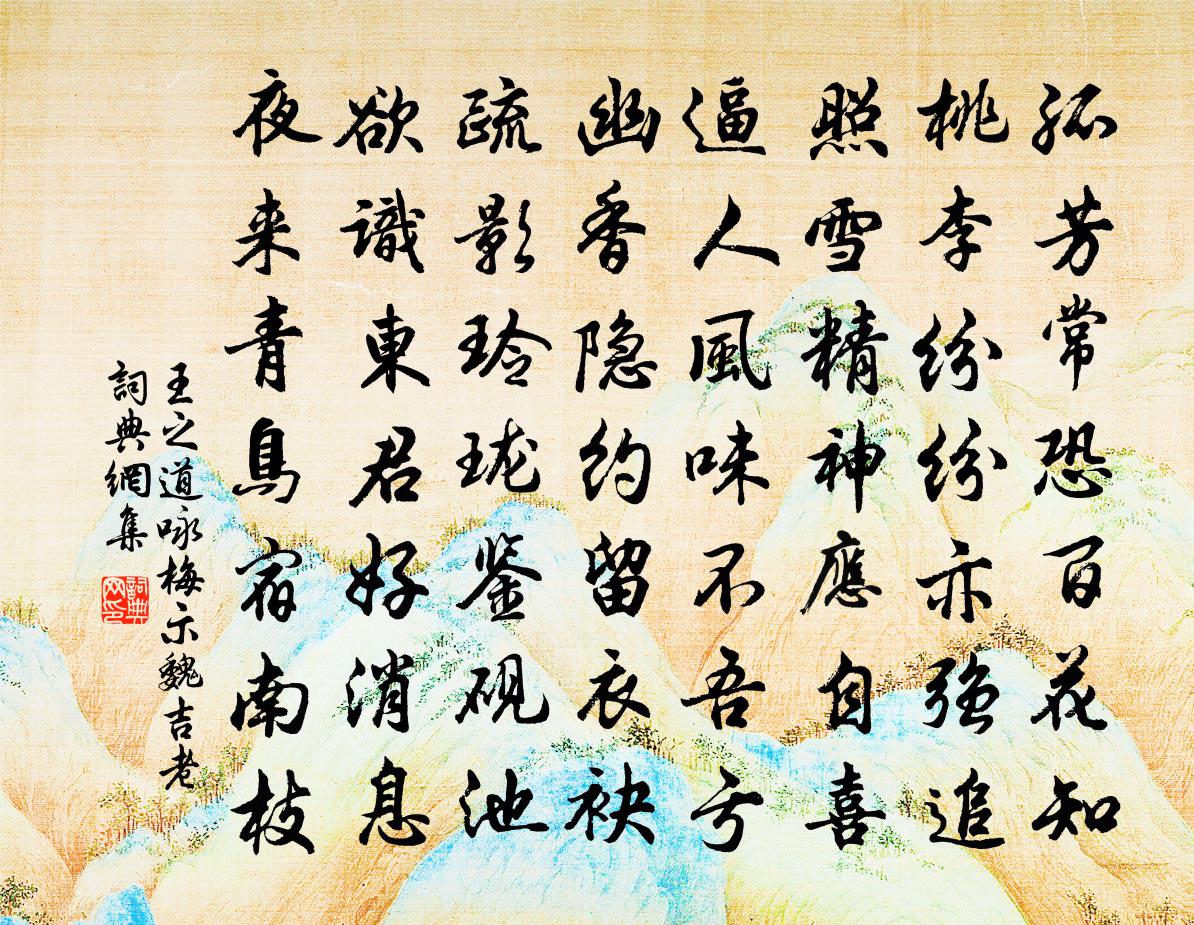 孤芳常恐百花知
桃李紛紛亦強追
照雪精神應自喜
逼人風味不吾亏
幽香隐約留衣袂
疏影玲珑鉴硯池
欲識東君好消息
夜来青鳥宿南枝
王之道咏梅示魏吉老
詞典網集